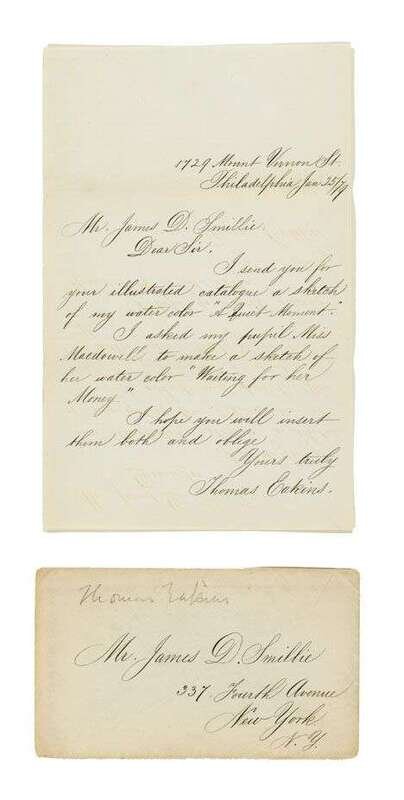 1729 Mount Vernon St.
Philadelphia Jan 25/79
Mr. James D. Smillie.
Dear Sir.
I send you for
your illustrated catalogue a sketch
of my water color "A Quiet Moment."
I asked my pupil Miss
Macdowell to make a sketch of
her water color "Waiting for her
Money."
I hope you will insert
them both and oblige
Yours truly
Thomas Eakins.
Thomas Eakins
Mr. James D. Smillie
337. Fourth Avenue
New York.
N. Y.